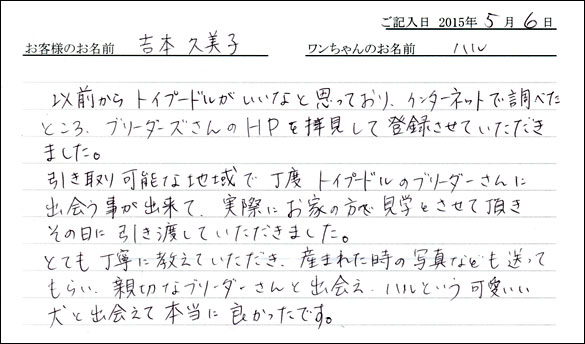 ご記入日 2015年 5月 6日
お客様のお名前 吉本 久美子 ワンちゃんのお名前 ハル
以前から トイプードルがいいなと思っており、インターネットで調べた
ところ、ブリーダーズさんのHPを拝見して登録させていただき
ました。
引き取り可能な地域で丁度 トイプードルのブリーダーさんに
出会う事が出来て、実際にお家の方で見学をさせて頂き
その日に引き渡していただきました。
とても丁寧に教えていただき、産まれた時の写真なども送って
もらい、親切なブリーダーさんと出会え、ハルという可愛いい
犬と出会えて本当に良かったです。